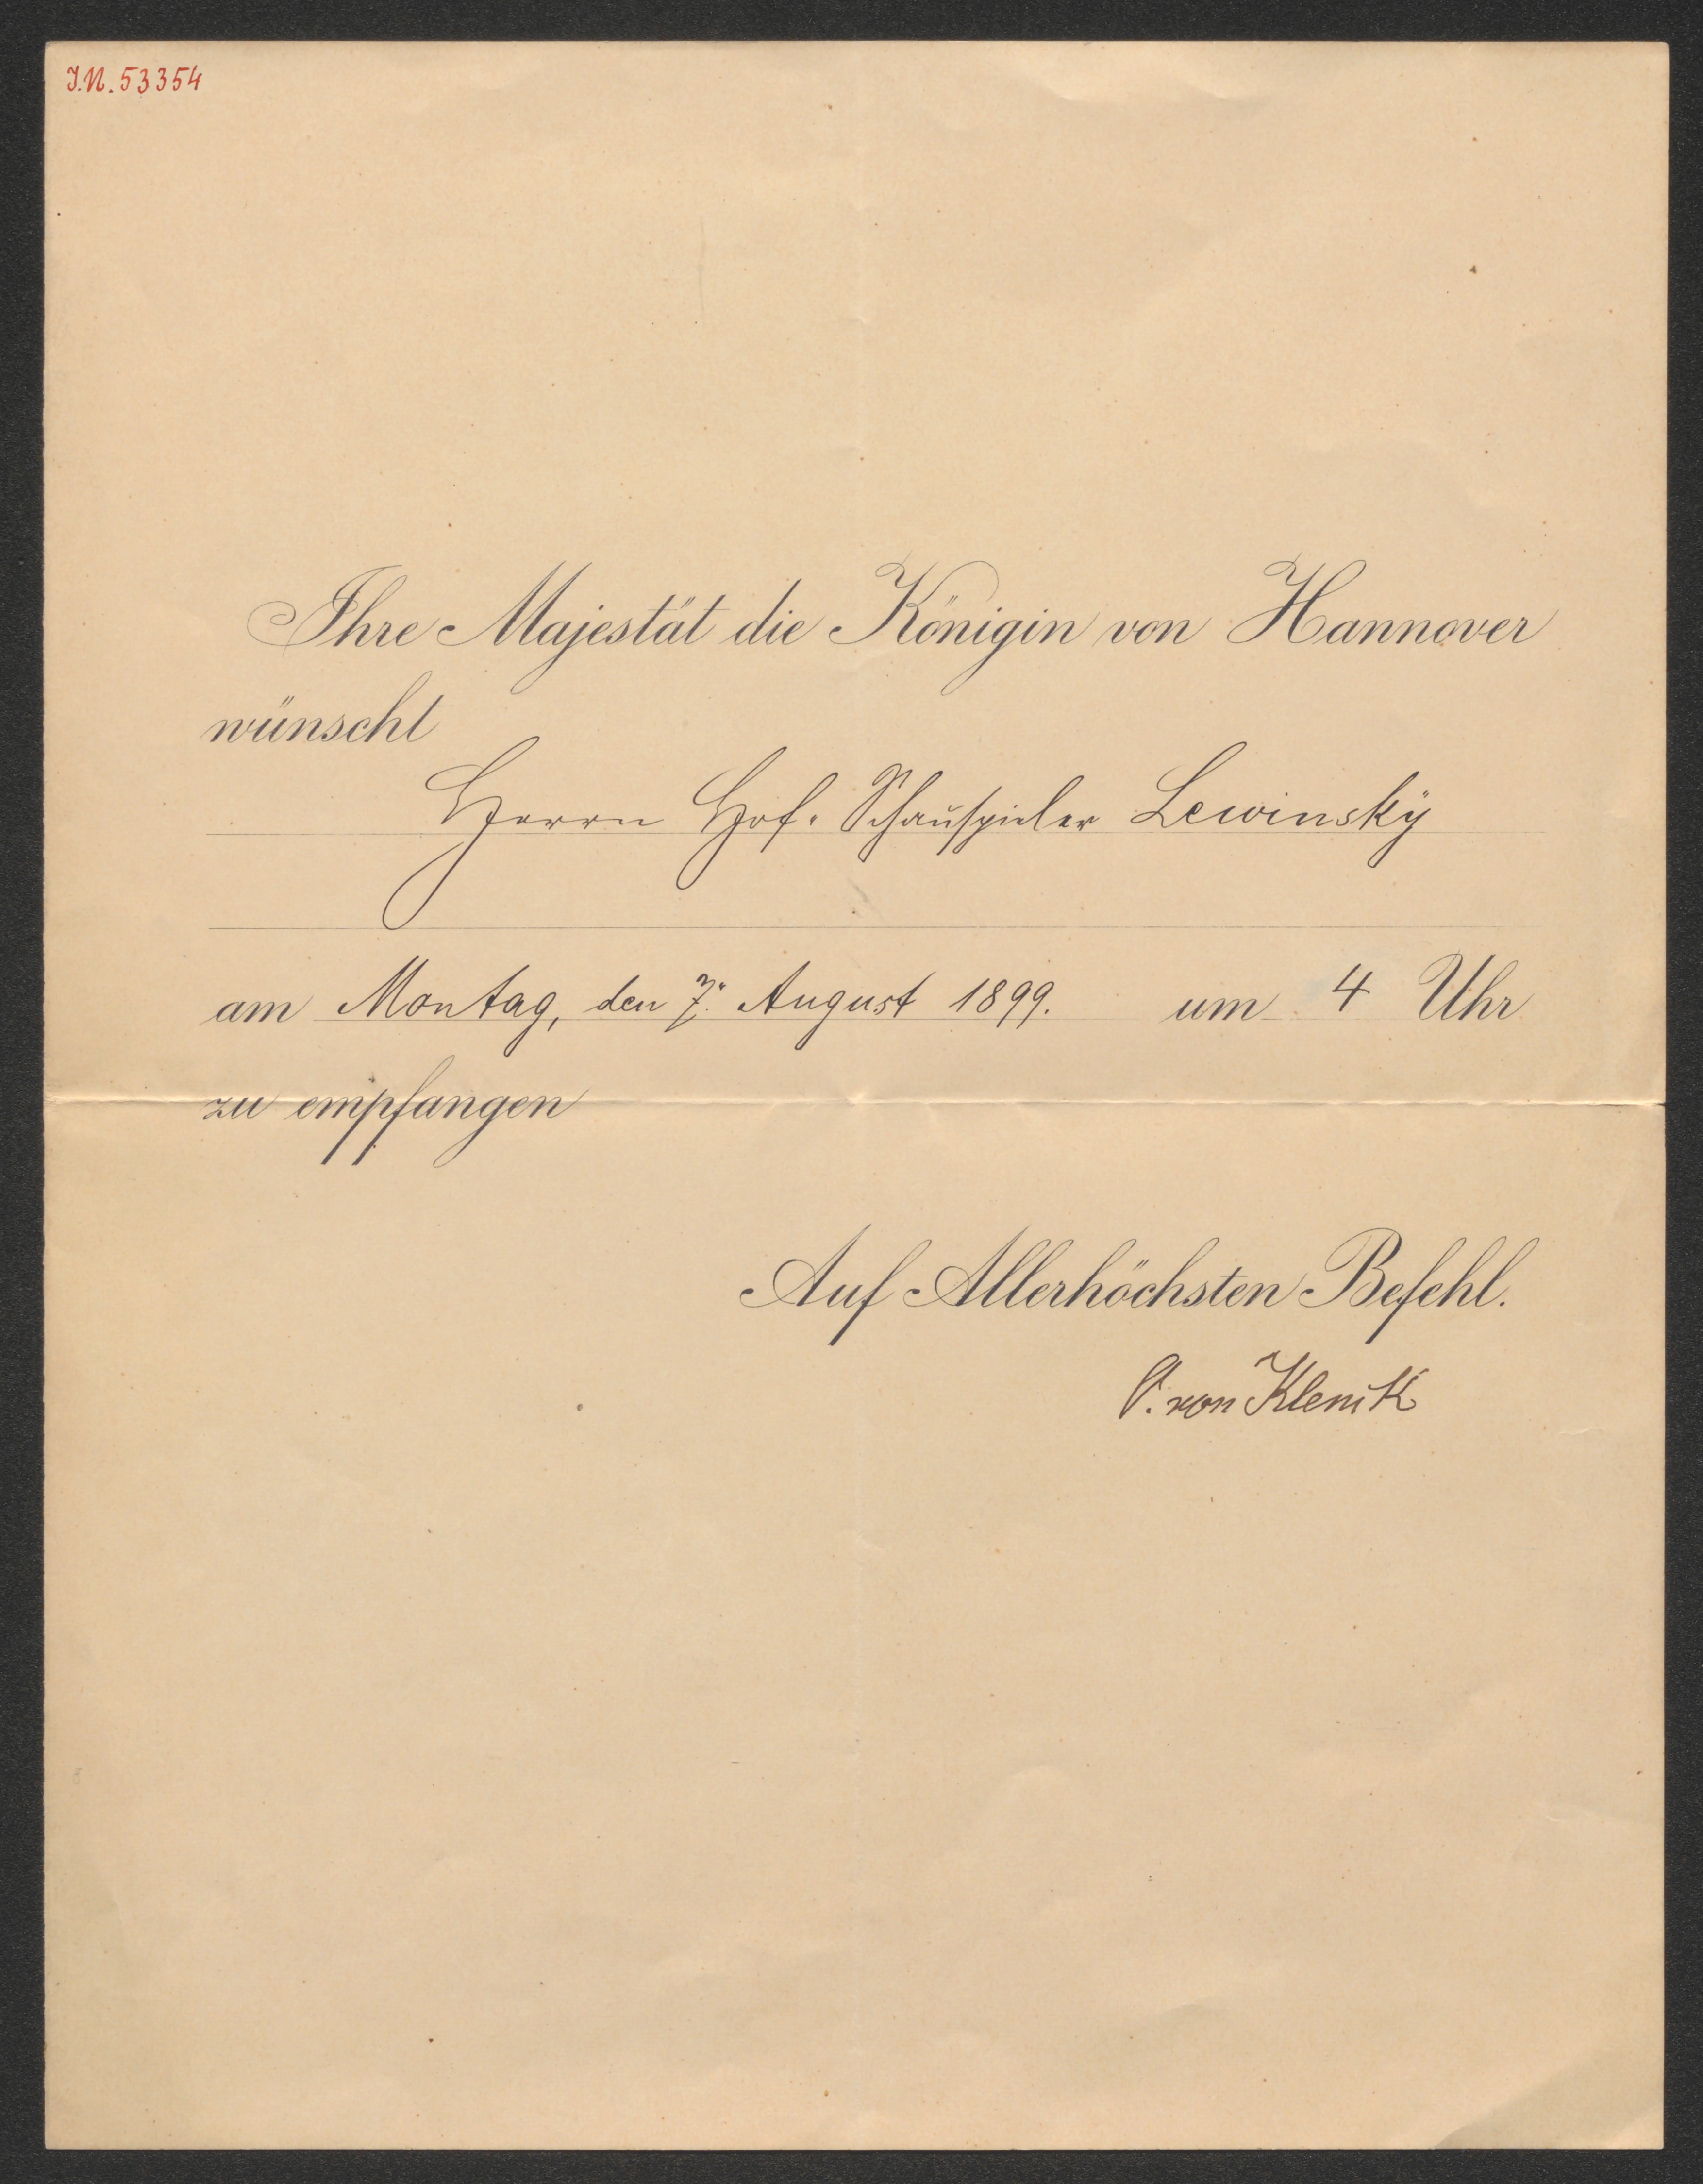 J.N. 53354
Ihre Majestät die Königin von Hannover
wünscht
Herrn Hof-Schauspieler Lewinsky
am Montag, den 7. August 1899. um 4 Uhr
zu empfangen
Auf Allerhöchsten Befehl.
von